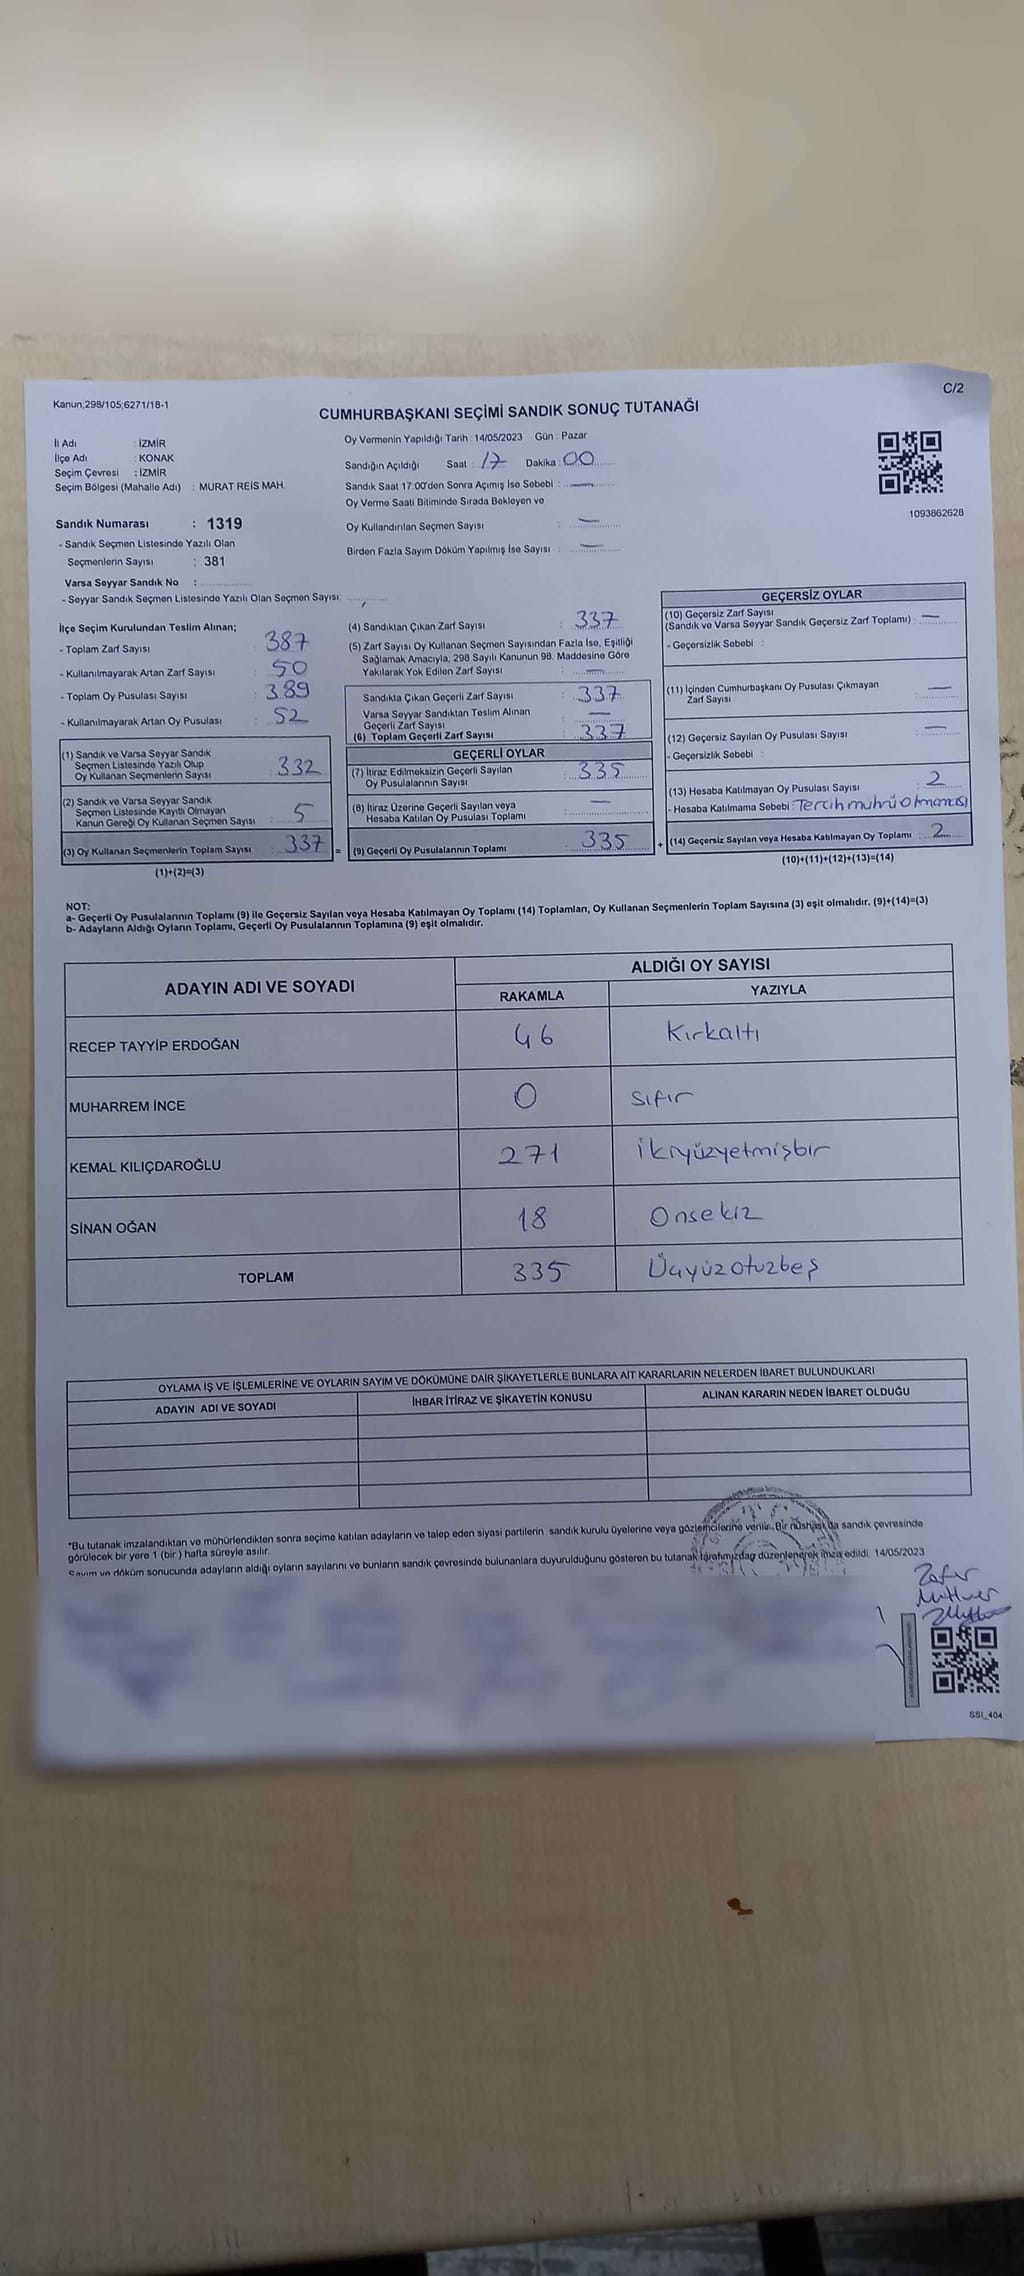 Kanun;298/105;6271/18-1
C/2
CUMHURBAŞKANI SEÇİMİ SANDIK SONUÇ TUTANAĞI
İl Adı : İZMİR
İlçe Adı : KONAK
Seçim Çevresi : İZMİR
Seçim Bölgesi (Mahalle Adı) : MURAT REİS MAH.
Sandık Numarası : 1319
- Sandık Seçmen Listesinde Yazılı Olan
Seçmenlerin Sayısı : 381
Varsa Seyyar Sandık No :
- Seyyar Sandık Seçmen Listesinde Yazılı Olan Seçmen Sayısı:
Oy Vermenin Yapıldığı Tarih : 14/05/2023 Gün : Pazar
Sandığın Açıldığı Saat : 17 Dakika : 00
Sandık Saat 17:00'den Sonra Açımış İse Sebebi : —
Oy Verme Saati Bitiminde Sırada Bekleyen ve
Oy Kullandırılan Seçmen Sayısı : —
Birden Fazla Sayım Döküm Yapılmış İse Sayısı : —
1093862628
İlçe Seçim Kurulundan Teslim Alınan;
- Toplam Zarf Sayısı : 387
- Kullanılmayarak Artan Zarf Sayısı : 50
- Toplam Oy Pusulası Sayısı : 389
- Kullanılmayarak Artan Oy Pusulası : 52
(1) Sandık ve Varsa Seyyar Sandık
Seçmen Listesinde Yazılı Olup
Oy Kullanan Seçmenlerin Sayısı : 332
(2) Sandık ve Varsa Seyyar Sandık
Seçmen Listesinde Kayıtlı Olmayan
Kanun Gereği Oy Kullanan Seçmen Sayısı : 5
(3) Oy Kullanan Seçmenlerin Toplam Sayısı : 337 =
(1)+(2)=(3)
(4) Sandıktan Çıkan Zarf Sayısı : 337
(5) Zarf Sayısı Oy Kullanan Seçmen Sayısından Fazla İse, Eşitliği
Sağlamak Amacıyla, 298 Sayılı Kanunun 98. Maddesine Göre
Yakılarak Yok Edilen Zarf Sayısı : —
Sandıkta Çıkan Geçerli Zarf Sayısı : 337
Varsa Seyyar Sandıktan Teslim Alınan
Geçerli Zarf Sayısı : —
(6) Toplam Geçerli Zarf Sayısı : 337
GEÇERLİ OYLAR
(7) İtiraz Edilmeksizin Geçerli Sayılan
Oy Pusulalarının Sayısı : 335
(8) İtiraz Üzerine Geçerli Sayılan veya
Hesaba Katılan Oy Pusulası Toplamı : —
(9) Geçerli Oy Pusulalarının Toplamı : 335 +
GEÇERSİZ OYLAR
(10) Geçersiz Zarf Sayısı
(Sandık ve Varsa Seyyar Sandık Geçersiz Zarf Toplamı) : —
- Geçersizlik Sebebi :
(11) İçinden Cumhurbaşkanı Oy Pusulası Çıkmayan
Zarf Sayısı : —
(12) Geçersiz Sayılan Oy Pusulası Sayısı : —
- Geçersizlik Sebebi :
(13) Hesaba Katılmayan Oy Pusulası Sayısı : 2
- Hesaba Katılmama Sebebi : Tercih mührü olmaması
(14) Geçersiz Sayılan veya Hesaba Katılmayan Oy Toplamı : 2
(10)+(11)+(12)+(13)=(14)
NOT:
a- Geçerli Oy Pusulalarının Toplamı (9) ile Geçersiz Sayılan veya Hesaba Katılmayan Oy Toplamı (14) Toplamları, Oy Kullanan Seçmenlerin Toplam Sayısına (3) eşit olmalıdır. (9)+(14)=(3)
b- Adayların Aldığı Oyların Toplamı, Geçerli Oy Pusulalarının Toplamına (9) eşit olmalıdır.
ADAYIN ADI VE SOYADI ALDIĞI OY SAYISI
RAKAMLA YAZIYLA
RECEP TAYYİP ERDOĞAN 46 Kırkaltı
MUHARREM İNCE 0 sıfır
KEMAL KILIÇDAROĞLU 271 ikiyüzyetmişbir
SİNAN OĞAN 18 Onsekiz
TOPLAM 335 Üçyüzotuzbeş
OYLAMA İŞ VE İŞLEMLERİNE VE OYLARIN SAYIM VE DÖKÜMÜNE DAİR ŞİKAYETLERLE BUNLARA AİT KARARLARIN NELERDEN İBARET BULUNDUKLARI
ADAYIN ADI VE SOYADI İHBAR İTİRAZ VE ŞİKAYETİN KONUSU ALINAN KARARIN NEDEN İBARET OLDUĞU
*Bu tutanak imzalandıktan ve mühürlendikten sonra seçime katılan adayların ve talep eden siyasi partilerin sandık kurulu üyelerine veya gözlemcilerine verilir. Bir nüshası da sandık çevresinde
görülecek bir yere 1 (bir) hafta süreyle asılır.
Sayım ve döküm sonucunda adayların aldığı oyların sayılarını ve bunların sandık çevresinde bulunanlara duyurulduğunu gösteren bu tutanak tarafımızdan düzenlenerek imza edildi. 14/05/2023
Zafer
SSI_404